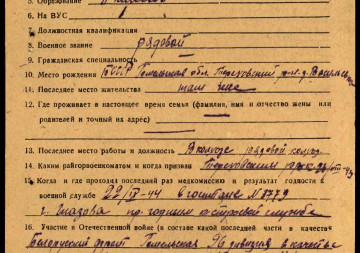 5. Образование
6. На ВУС —
7. Должностная квалификация
8. Военное звание рядовой
9. Гражданская специальность
10. Место рождения БССР Гомельская обл. Тереховский р-н д.
11. Последнее место жительства там же
12. Где проживает в настоящее время семья (фамилия, имя и отчество жены или
родителей и точный их адрес)
13. Последнее место работы и должность В колхозе рядовой
14. Каким райгорвоенкоматом и когда призван Тереховским РВК
15. Когда и где проходил последний раз медкомиссию и результат годности к
военной службе 22/IV-44 в госпитале № 3779
г. Глазова пр. годным к строевой службе
16. Участие в Отечественной войне (в составе какой последней части в качестве
Белорусский фронт Гомельская 96 дивизия в качестве